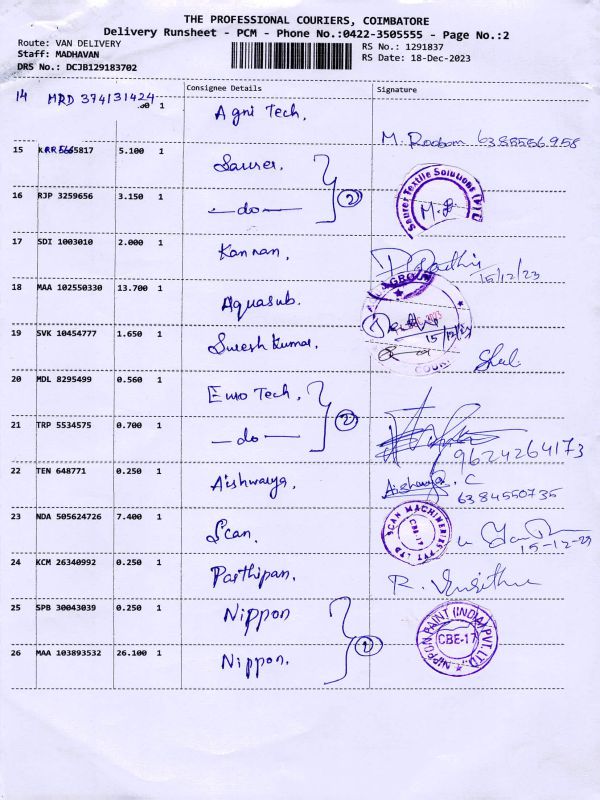 THE PROFESSIONAL COURIERS, COIMBATORE
Delivery Runsheet - PCM - Phone No.:0422-3505555 - Page No.:2
Route: VAN DELIVERY
Staff: MADHAVAN
DRS No.: DCJB129183702
RS No.: 1291837
RS Date: 18-Dec-2023
Consignee Details Signature
14 MRD 374131424 .00 1 Agni Tech,
M. 6385556958
15 5665817 5.100 1 Saurer,
16 RJP 3259656 3.150 1 —do— 2 Saurer Textile Solutions (P) LTD
17 SDI 1003010 2.000 1 Kannan, 15/12/23
18 MAA 102550330 13.700 1 Aquasub. GROUP
19 SVK 10454777 1.650 1 Suresh Kumar, 15/12/23
20 MDL 8295499 0.560 1 Euro Tech,
21 TRP 5534575 0.700 1 —do— 2 9624264173
22 TEN 648771 0.250 1 Aishwarya, Aishwarya. C
6384550735
23 NDA 505624726 7.400 1 Scan. SCAN MACHINERIES PVT LTD CBE-17 15-12-23
24 KCM 26340992 0.250 1 Parthipan. R.
25 SPB 30043039 0.250 1 Nippon
26 MAA 103893532 26.100 1 Nippon. 2 NIPPON PAINT (INDIA) PVT. LTD. CBE-17